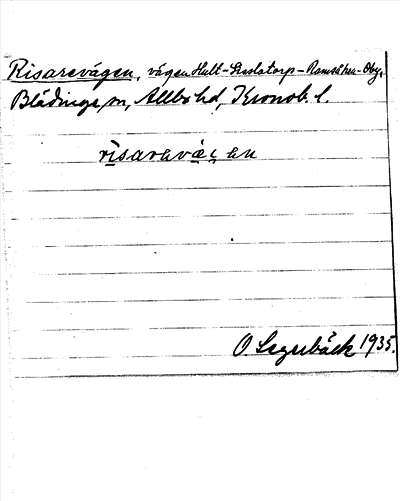 Risarevägen, vägen Hult-Skeslatorp-Ramsåkra-Oby,
Blädinge sn, Allbo hd, Kronob. l.
risarəvæ̨gən
O. Segerbäck 1935.